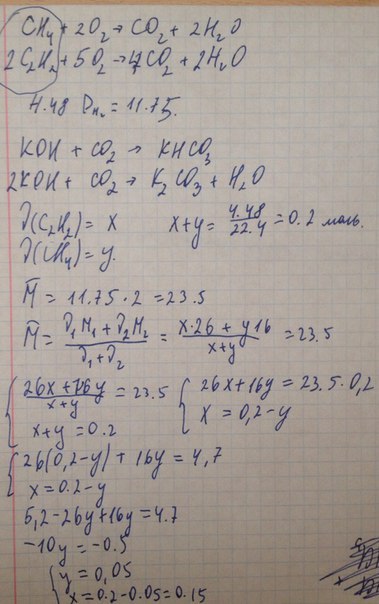 CH₄ + 2O₂ → CO₂ + 2H₂O
2C₂H₂ + 5O₂ → 4CO₂ + 2H₂O
4.48 D_H₂ = 11.75.
KOH + CO₂ → KHCO₃
2KOH + CO₂ → K₂CO₃ + H₂O
ν(C₂H₂) = x x+y = 4.48/22.4 = 0.2 моль.
ν(CH₄) = y.
M̄ = 11.75 · 2 = 23.5
M̄ = (ν₁M₁ + ν₂M₂)/(ν₁ + ν₂) = (x·26 + y16)/(x+y) = 23.5
{ (26x + 16y)/(x+y) = 23.5 { 26x + 16y = 23.5 · 0,2
x+y = 0.2 x = 0,2 - y
{ 26(0,2-y) + 16y = 4,7
x = 0.2 - y
5,2 - 26y + 16y = 4.7
-10y = -0.5
{ y = 0,05
x = 0.2 - 0.05 = 0.15